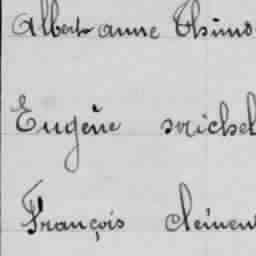 Albert anne Thimo
Eugène michel
François clemen